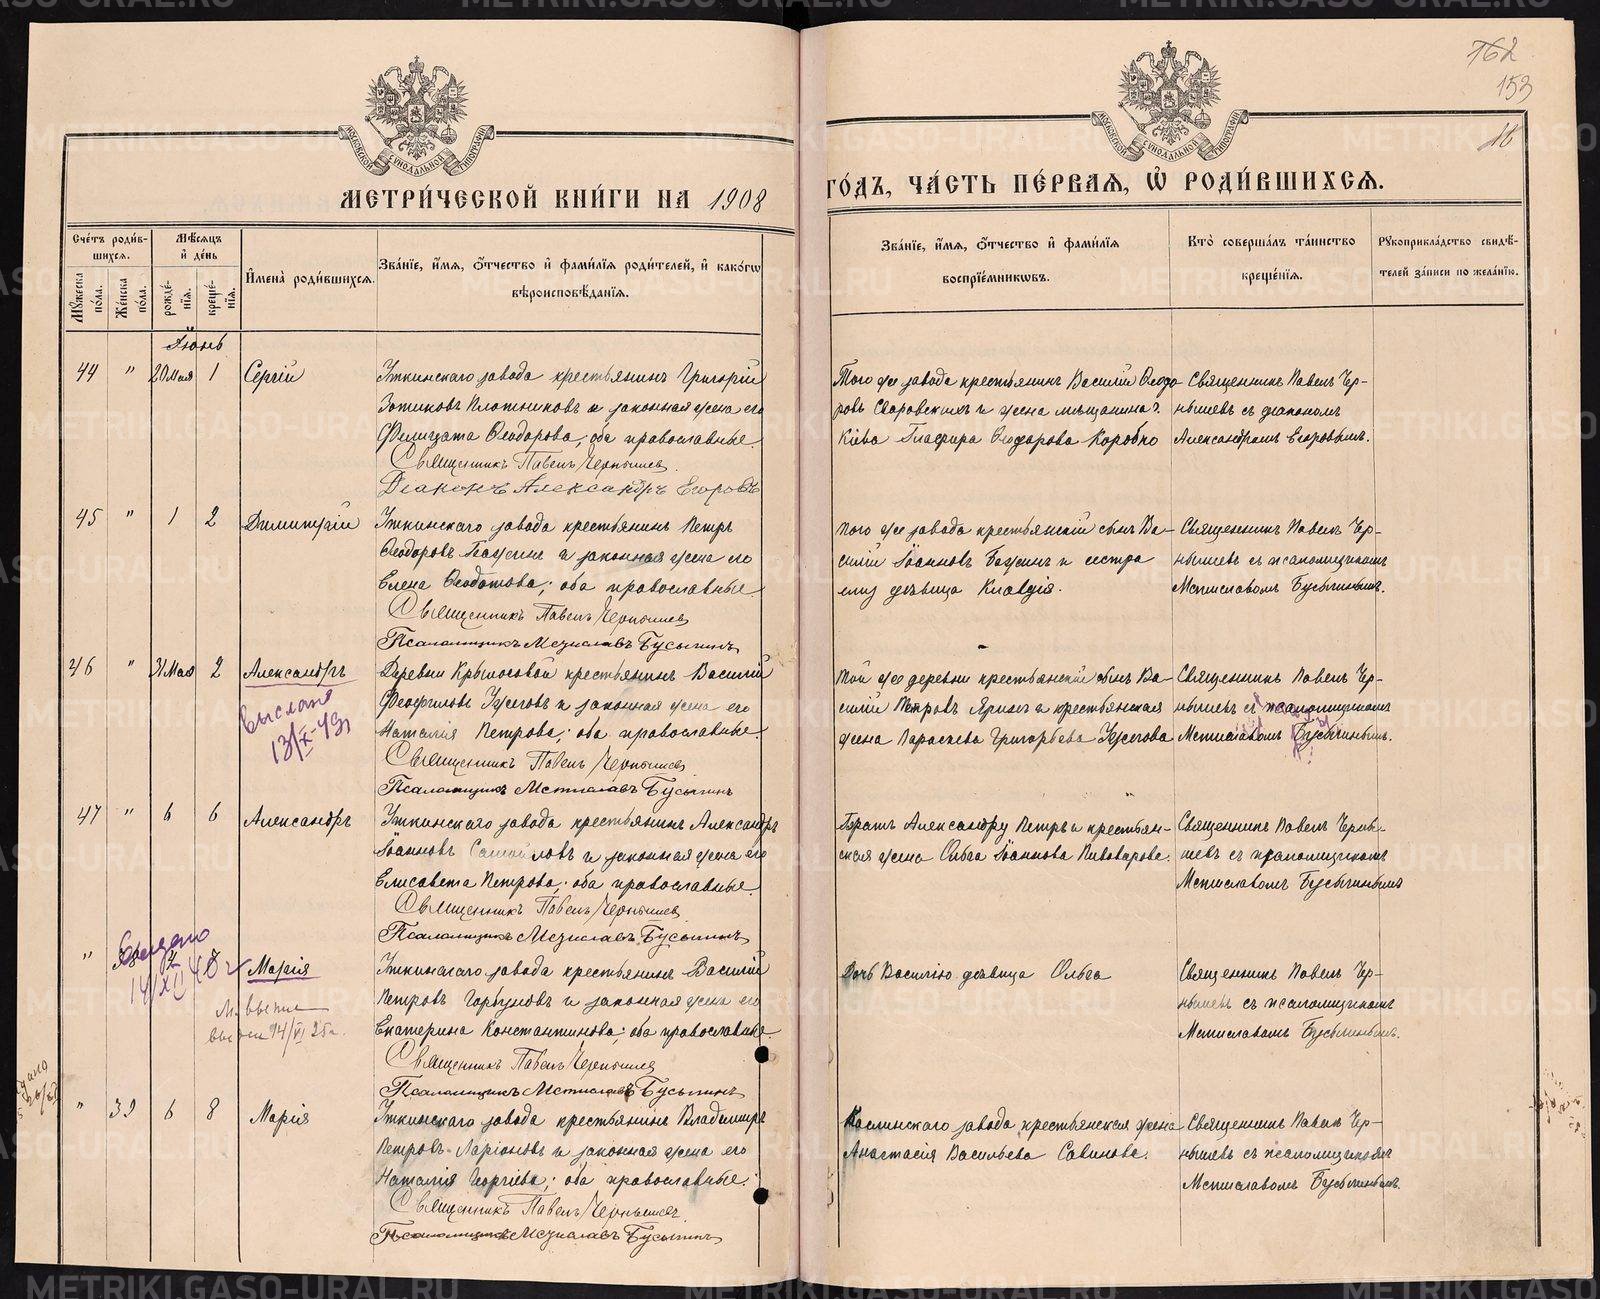 162
153
16
МОСКОВСКОЙ СѴНОДАЛЬНОЙ ТИПОГРАФІИ
МОСКОВСКОЙ СѴНОДАЛЬНОЙ ТИПОГРАФІИ
МЕТРИ́ЧЕСКОЙ КНИ́ГИ НА 1908
ГО́ДЪ, ЧА́СТЬ ПЕ́РВАѦ, Ѡ҆ РОДИ́ВШИХСѦ.
Сче́тъ роди́в-
шихсѧ.
Мꙋ́жеска по́ла.
Же́нска по́ла.
Мѣ́сѧцъ
и҆ де́нь
рожде́-нїѧ.
креще́-нїѧ.
И҆мена̀ роди́вшихсѧ.
Зва́нїе, и҆́мѧ, ѻ҆́тчество и҆ фами́лїѧ роди́телей, и҆ како́гѡ
вѣроисповѣ́данїѧ.
Зва́нїе, и҆́мѧ, ѻ҆́тчество и҆ фами́лїѧ
воспрїе́мникѡвъ.
Кто̀ соверша́лъ та́инство
креще́нїѧ.
Рꙋкоприкла́дство свидѣ́-
телей за́писи по жела́нїю.
Іюнь
44 " 20 Мая 1 Сергій
Уткинскаго завода крестьянинъ Григорій
Зотиковъ Плотниковъ и законная жена его
Фелицата Ѳеодорова, оба православные.
Священникъ Павелъ Чернышев
Діаконъ Александръ Егоровъ
Того же завода крестьянинъ Василій Ѳеодо-
ровъ и жена мѣщанина г.
Кіева Глафира Ѳеодорова Коробко
Священникъ Павелъ Чер-
нышевъ съ діакономъ
Александромъ Егоровымъ.
45 " 1 2 Димитрій
Уткинскаго завода крестьянинъ Петръ
Ѳеодоровъ и законная жена его
Елена Ѳеодотова; оба православные.
Священникъ Павелъ Чернышев
Псаломщикъ Мстиславъ Бусыгинъ
того же завода крестьянскій сынъ Ва-
силій Іоанновъ и сестра
ему дѣвица Клавдія.
Священникъ Павелъ Чер-
нышевъ съ псаломщикомъ
Мстиславомъ Бусыгинымъ.
46 " 31 Мая 2 Александръ
Выслана
13/X-43
Деревни Крылосовой крестьянинъ Василій
Феофиловъ и законная жена его
Наталія Петрова; оба православные.
Священникъ Павелъ Чернышев
Псаломщикъ Мстиславъ Бусыгинъ
той же деревни крестьянскій сынъ Ва-
силій Петровъ и крестьянская
жена Параскева Григорьева
Священникъ Павелъ Чер-
нышевъ съ псаломщикомъ
Мстиславомъ Бусыгинымъ.
47 " 6 6 Александръ
Уткинскаго завода крестьянинъ Александръ
Іоанновъ Самойловъ и законная жена его
Елисавета Петрова; оба православные.
Священникъ Павелъ Чернышев
Псаломщикъ Мстиславъ Бусыгинъ
Братъ Александру Петръ и крестьян-
ская жена Ольга Іоаннова Пивоварова.
Священникъ Павелъ Черны-
шевъ съ псаломщикомъ
Мстиславомъ Бусыгинымъ
" 38 2 8 Марія
Выдано
Уткинскаго завода крестьянинъ Василій
Петровъ Горбуновъ и законная жена его
Екатерина Константинова; оба православные.
Священникъ Павелъ Чернышев
Псаломщикъ Мстиславъ Бусыгинъ
Дочь Василію дѣвица Ольга
Священникъ Павелъ Чер-
нышевъ съ псаломщикомъ
Мстиславомъ Бусыгинымъ.
" 39 6 8 Марія
Уткинскаго завода крестьянинъ Владимиръ
Петровъ Ларіоновъ и законная жена его
Наталія Георгіева; оба православные.
Священникъ Павелъ Чернышев
Псаломщикъ Мстиславъ Бусыгинъ
Каслинскаго завода крестьянская жена
Анастасія Васильева Савинова.
Священникъ Павелъ Чер-
нышевъ съ псаломщикомъ
Мстиславомъ Бусыгинымъ.
METRIKI.GASO-URAL.RU